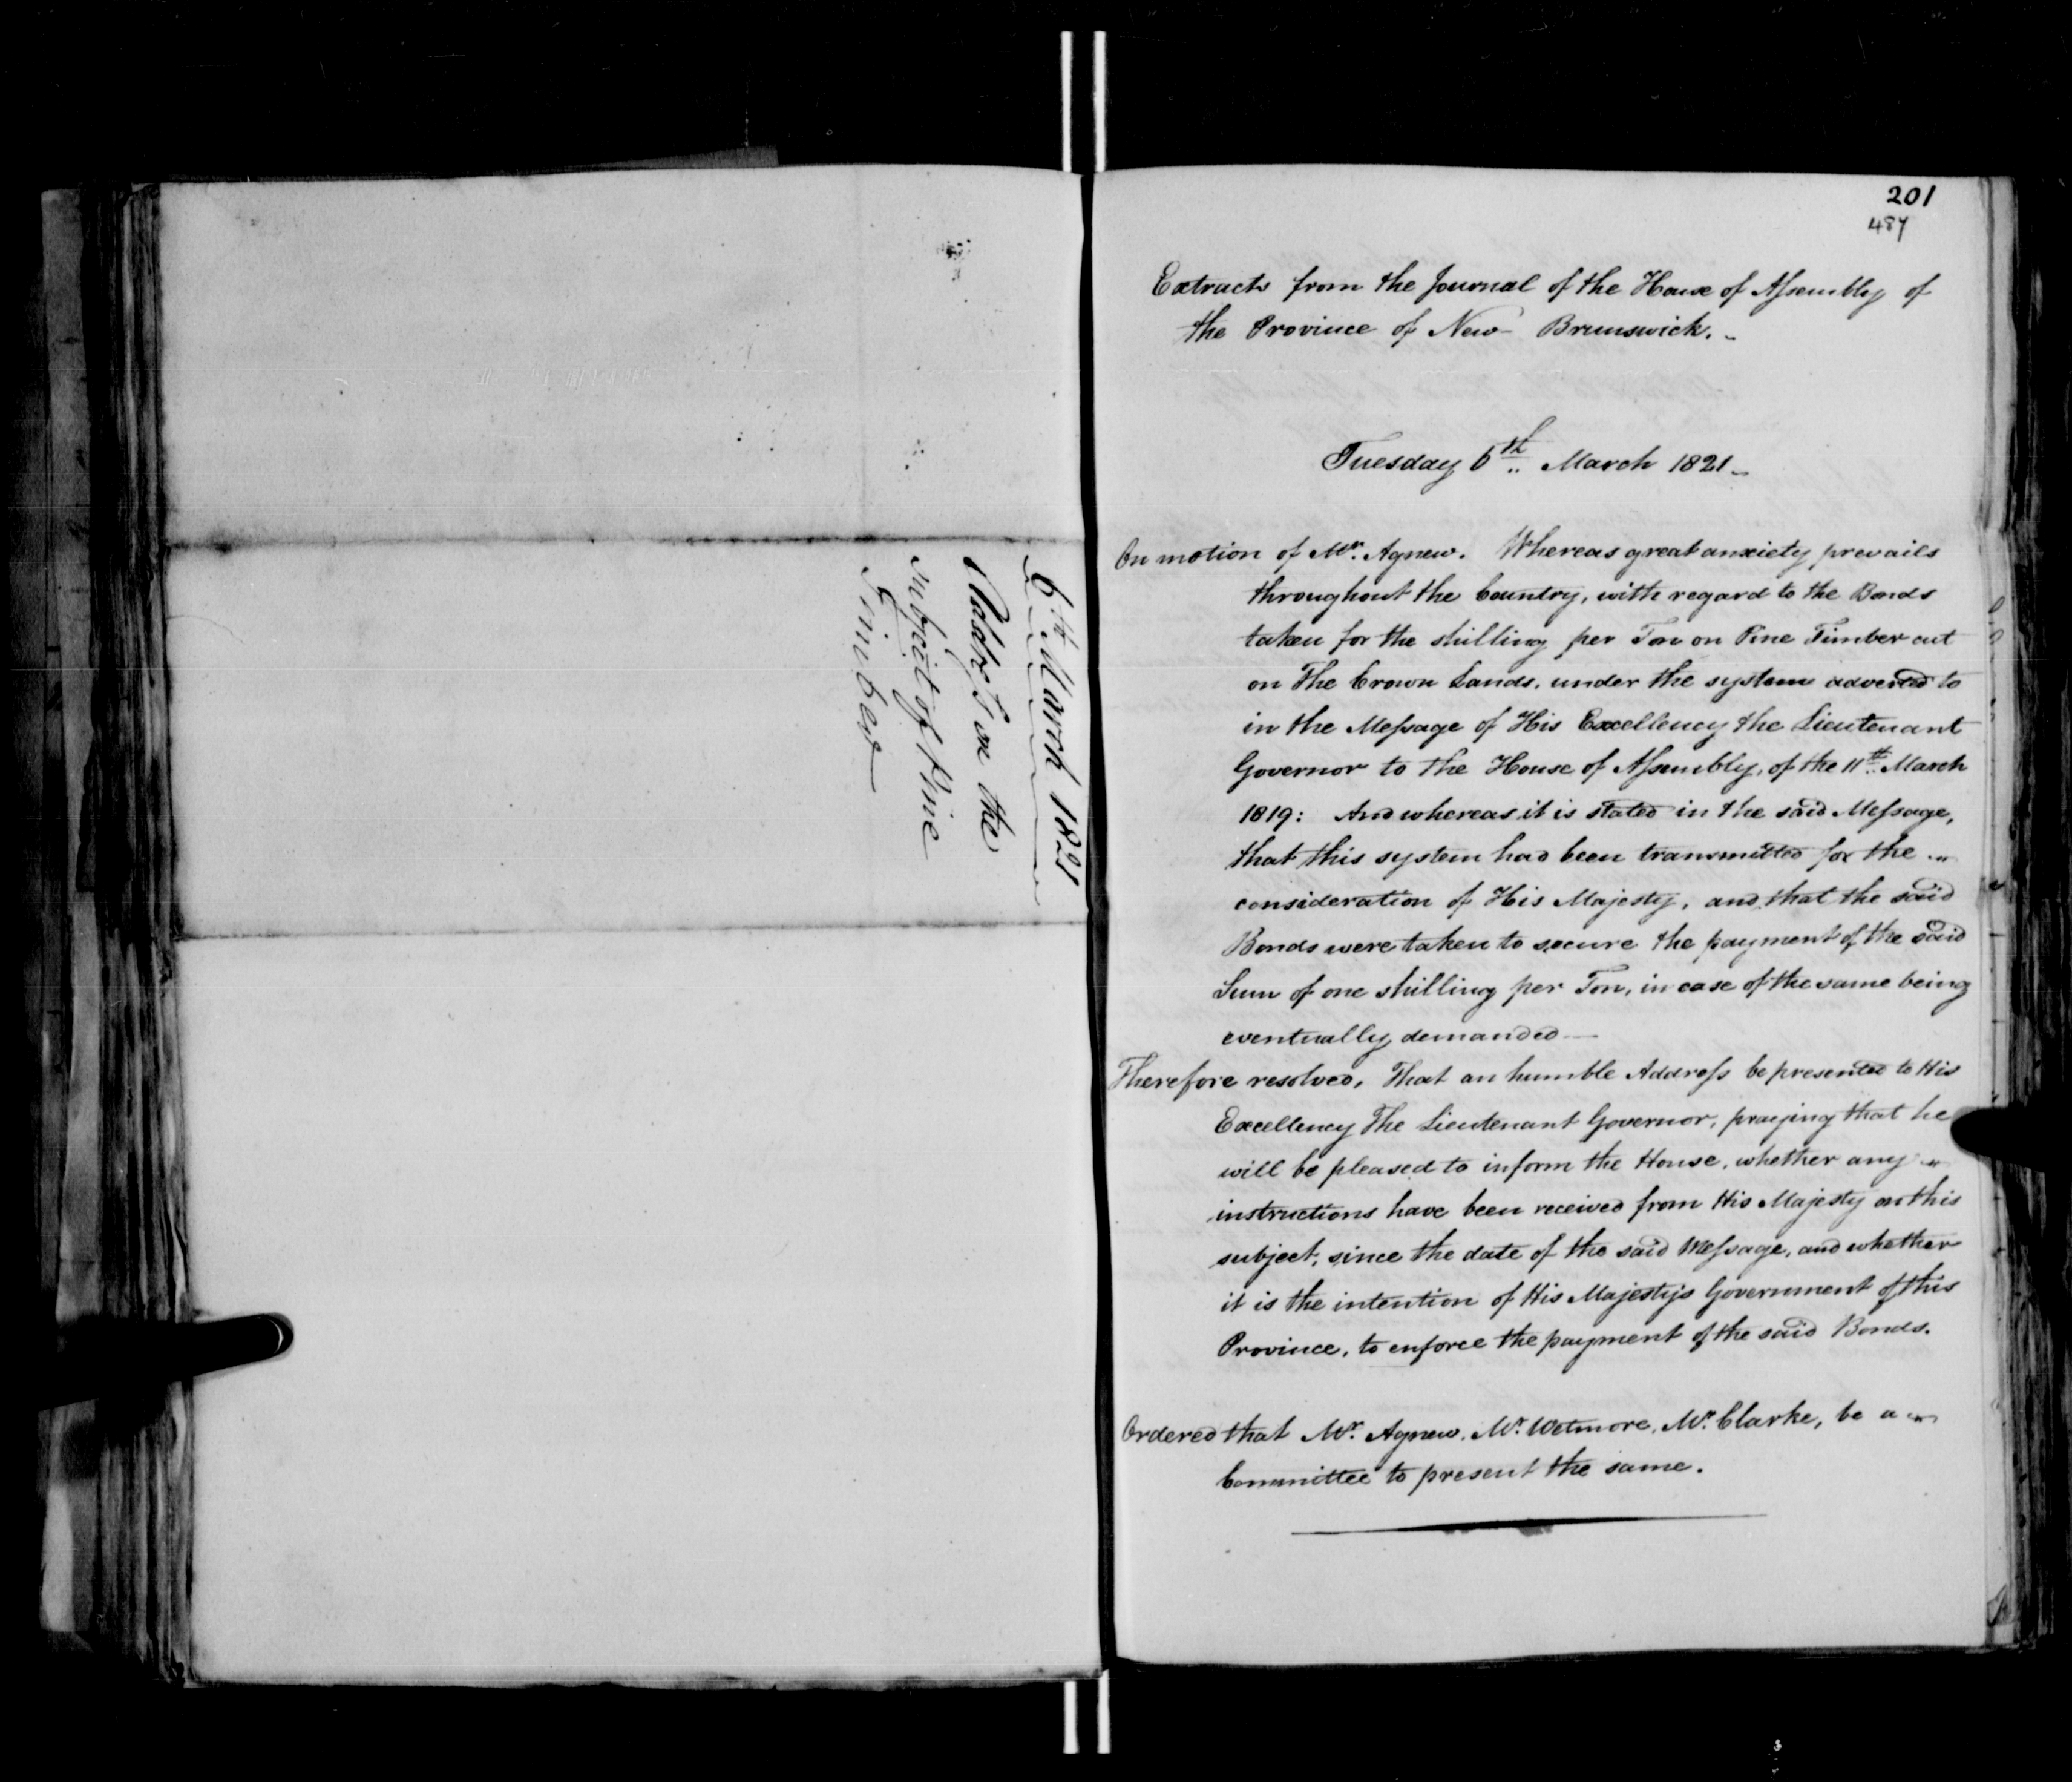 6th March 1821
Addrs'l on the
subject of Pine
Timber
201
487
Extracts from the Journal of the House of Assembly of
the Province of New Brunswick.
Tuesday 6th March 1821
On motion of Mr. Agnew. Whereas great anxiety prevails
throughout the Country, with regard to the Bonds
taken for the shilling per Ton on Pine Timber cut
on The Crown Lands, under the system adverted to
in the Message of His Excellency the Lieutenant
Governor to the House of Assembly, of the 11th March
1819: And whereas it is stated in the said Message,
that this system had been transmitted for the
consideration of His Majesty, and that the said
Bonds were taken to secure the payment of the said
Sum of one shilling per Ton, in case of the same being
eventually demanded—
Therefore resolved, That an humble Address be presented to His
Excellency The Lieutenant Governor, praying that he
will be pleased to inform the House, whether any
instructions have been received from His Majesty on this
subject, since the date of the said Message, and whether
it is the intention of His Majesty's Government of this
Province, to enforce the payment of the said Bonds.
Ordered that Mr. Agnew, Mr. Wetmore, Mr. Clarke, be a
Committee to present the same.